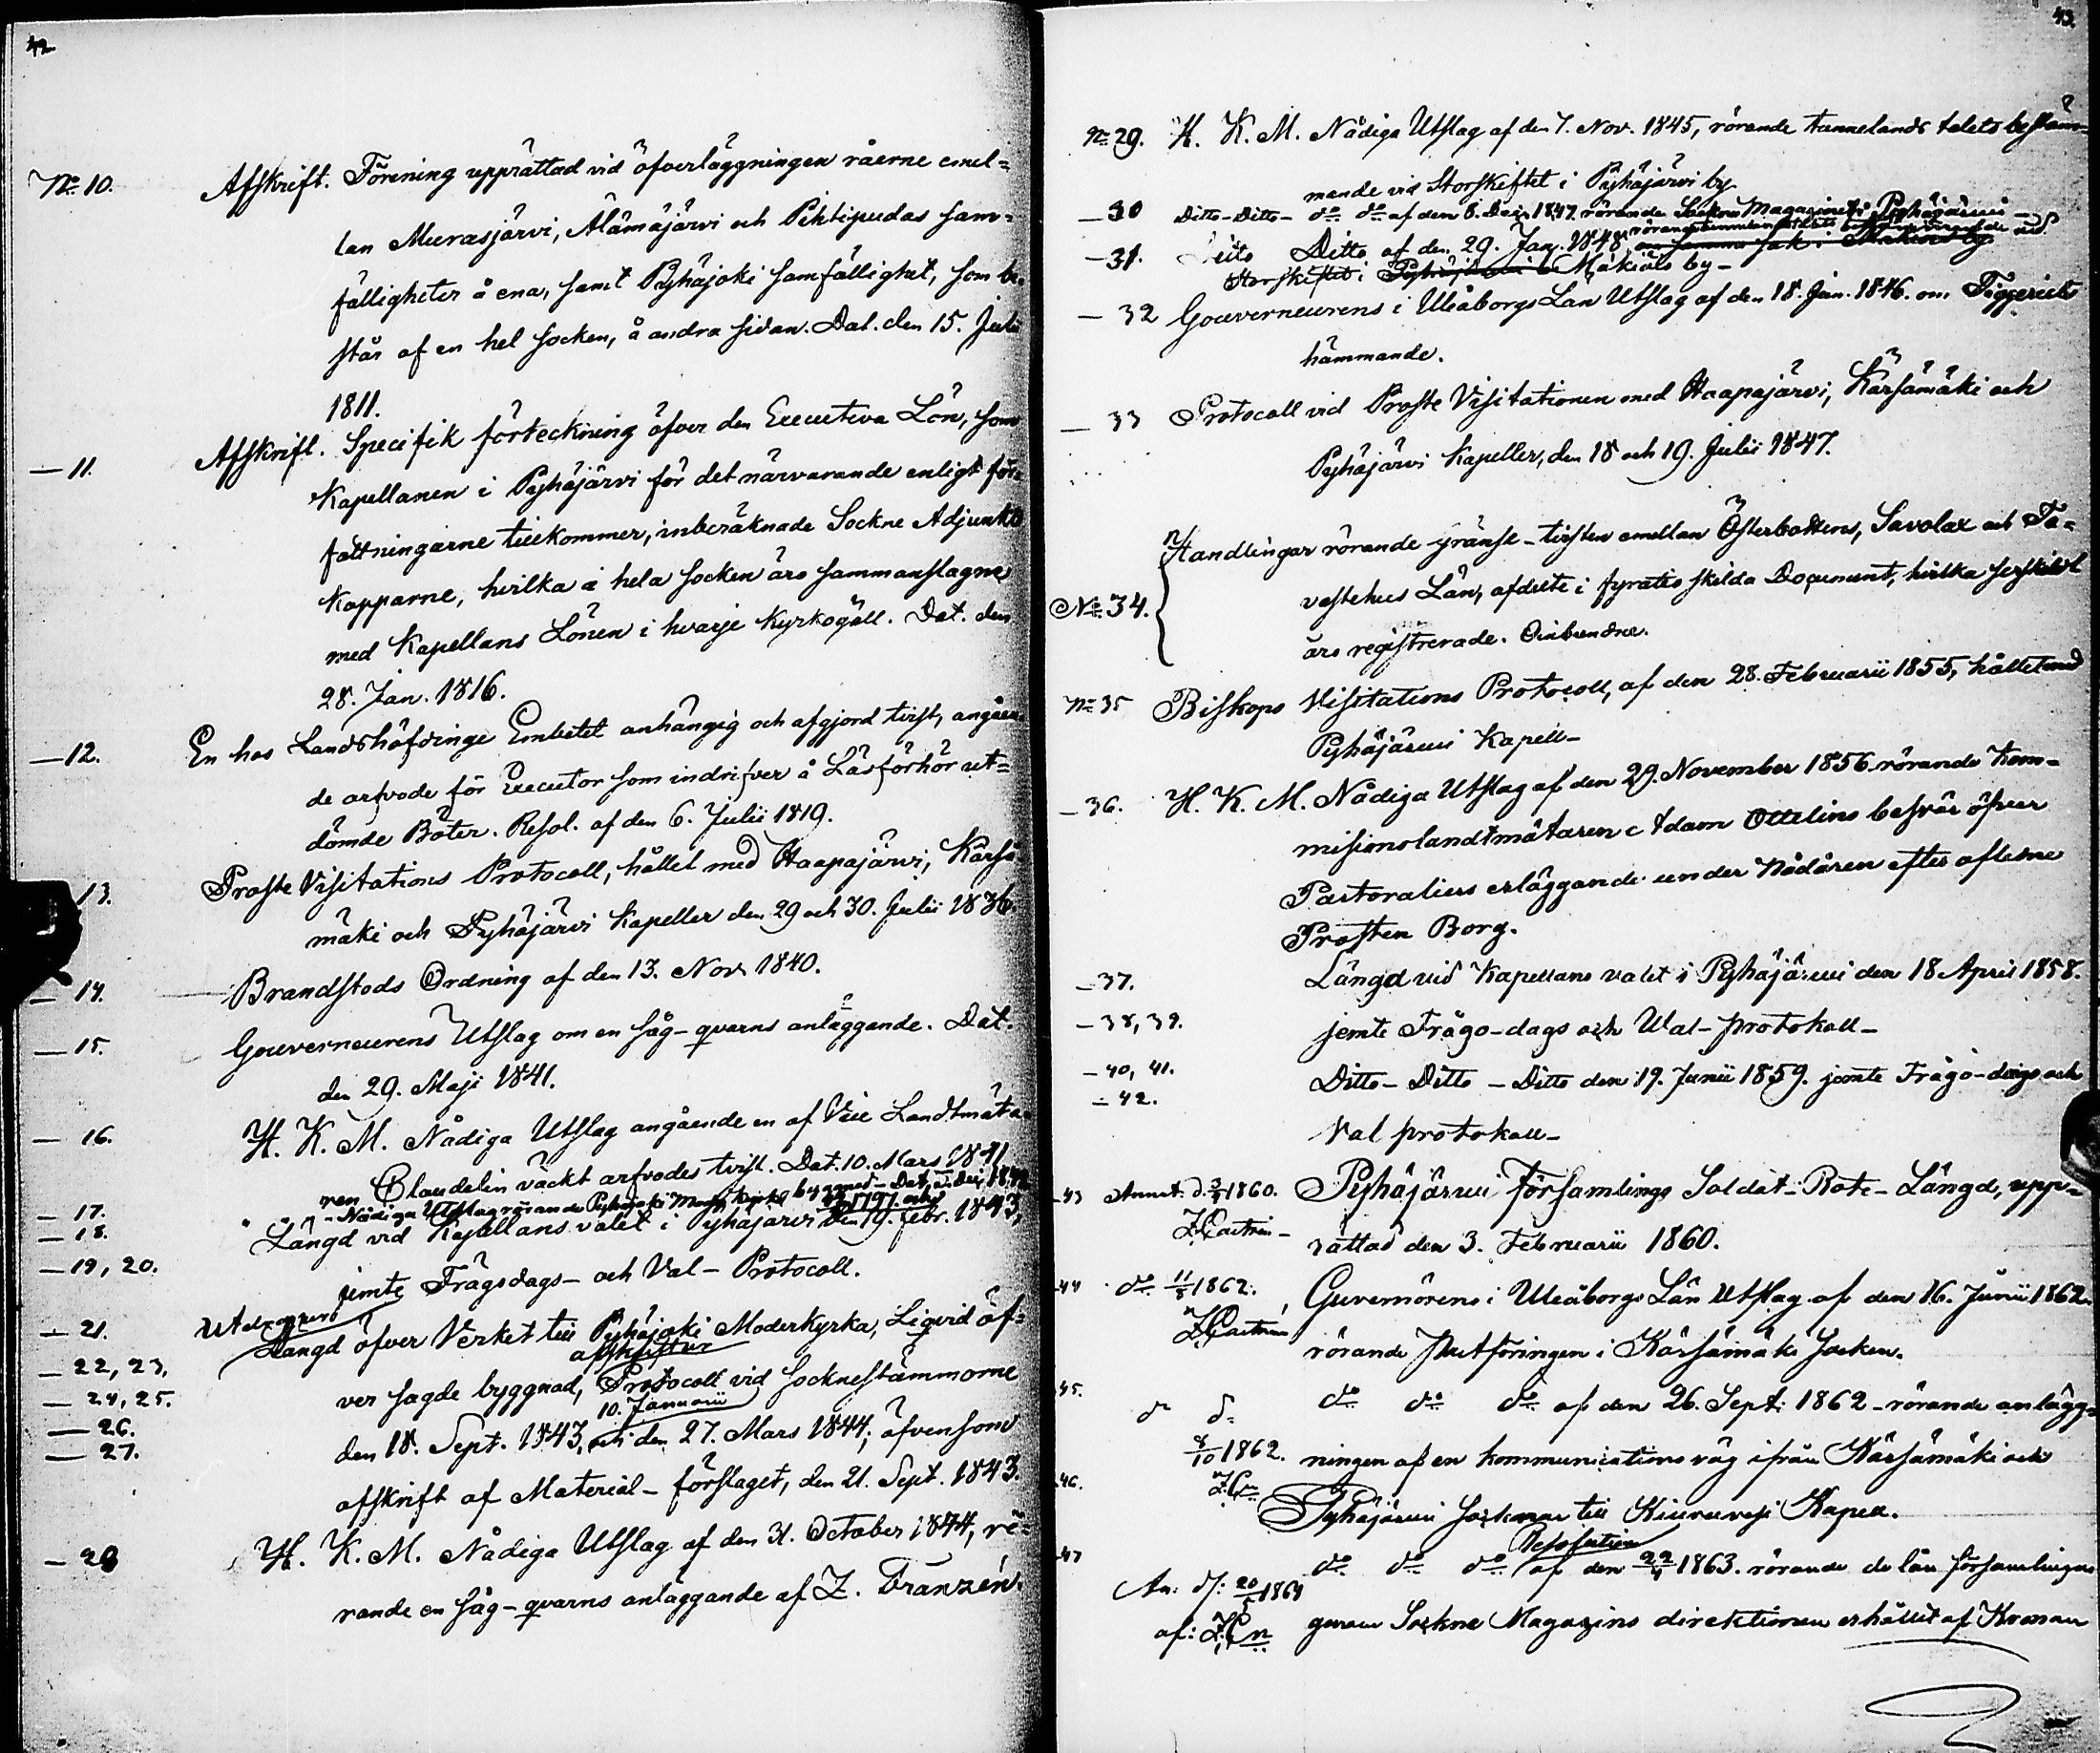 42
No 10. Afskrift. Förening upprättad vid öfverläggningen råerne emel=
lan Muurasjärvi, Alämäjärvi och Pihtipudas sam=
fälligheter å ena, samt Pyhäjoki samfällighet, som be=
står af en hel socken, å andra sidan. Dat. den 15. Julii
1811.
— 11. Afskrift. Specifik förteckning öfver den Executiva Lön, som
Kapellanen i Pyhäjärvi för det närvarande enligt för=
fattningarne tillkommer, inberäknade Sockne Adjunkts
Kapparne, hvilka i hela socken äro sammanslagne
med Kapellans Lönen i hvarje Kyrkogäll. Dat. den
28. Jan. 1816.
— 12. En hos Landshöfdinge Embetet anhängig och afgjord tvist, angåen=
de arfvode för Executor som indrifver å Läsförhör ut=
dömde Böter. Resol. af den 6. Julii 1819.
13. Proste Visitations Protocoll, hållet med Haapajärvi, Kärsä=
mäki och Pyhäjärvi Kapeller den 29 och 30. Julii 1836.
— 14. Brandstods Ordning af den 13. Nov. 1840.
— 15. Gouverneurens Utslag om en såg-qvarns anläggande. Dat.
den 29. Maji 1841.
— 16. H. K. M. Nådiga Utslag angående en af Vice Landtmäta=
ren Claudelin väckt arfvodes tvist. Dat. 10. Mars 1841
— 17. - Nådiga Utslag rörande Pyhäjoki Moder Kyrko byggnad - Dat.
— 18. Längd vid Kapellans valet i Pyhäjärvi den 19. Febr. 1843,
— 19, 20. jemte Frågsdags- och Val- Protocoll.
Utdragens
— 21. Längd öfver Verket till Pyhäjoki Moderkyrka, Liqvid öf=
afskrifter
— 22, 23. ver sagde byggnad, Protocoll vid sockneståmmorne
— 24, 25.
10. Januarii
— 26. den 18. Sept. 1843, och den 27. Mars 1844; äfvensom
— 27.
afskrift af Material- förslaget, den 21. Sept. 1843.
— 28 H. K. M. Nådiga Utslag af den 31. October 1844, rö=
rande en såg-qvarns anläggande af Z. Franzén.
43.
No 29. H. K. M. Nådiga Utslag af den 7. Nov. 1845, rörande tunnelands talets bestäm=
mande vid Storskiftet i Pyhäjärvi by
— 30 Ditto - Ditto - do do af den 8. Dec. 1847. rörande Sockne Magazinet i Pyhäjärvi -
— 31. Ditto Ditto af den 29. Jan. 1848, om samma sak i Mäkiöis by
Storskiftet i Pyhäjärvi Mäkiöis by -
— 32 Gouverneurens i Uleåborgs Län Utslag af den 18. Jun. 1846. om Tiggeriets
hämmande.
— 33 Protocoll vid Proste Visitationen med Haapajärvi, Kärsämäki och
Pyhäjärvi Kapeller, den 18 och 19. Julii 1847.
Handlingar rörande gränse-tvisten emellan Österbottens, Savolax och Ta=
No 34. vastehus Län, afdelte i fyratio skilda Document, hvilka serskildt
äro registrerade. Oinbundne.
No 35 Biskops Visitations Protocoll, af den 28. Februarii 1855, hållet med
Pyhäjärvi Kapell -
— 36. H. K. M. Nådiga Utslag af den 29. November 1856 rörande Kom=
misionslandtmätaren Adam Ottelins besvär öfver
Pastoraliers erläggande under Nådåren efter aflidne
Prosten Borg.
— 37. Längd vid Kapellans valet i Pyhäjärvi den 18 April 1858.
— 38, 39. jemte Frågo-dags och Wal-protokoll -
— 40, 41. Ditto - Ditto - Ditto den 19. Junii 1859. jemte Frågo-dags och
— 42.
Val protokoll -
43 Annot. d. 3/3 1860. Pyhäjärvi församlings Soldat- Rote- Längd, upp=
Z. Castrén - rättad den 3. Februarii 1860.
44 do 11/8 1862. Guvernörens i Uleåborgs Län Utslag af den 16. Junii 1862.
Z. Castrén rörande skutsföringen i Kärsämäki socken.
45. do do do do do af den 26. Sept. 1862 - rörande anlägg=
8/10 1862. ningen af en kommunications väg ifrån Kärsämäki och
46. Z. Cn Pyhäjärvi Socknar till Kiuruvesi Kapell.
Resolution
47 do do do af den 22/4 1863. rörande de lån församlingen
An: d: 20/5 1864
af: Z. Cn genom Sockne Magazins direktionen erhållit af Kronan